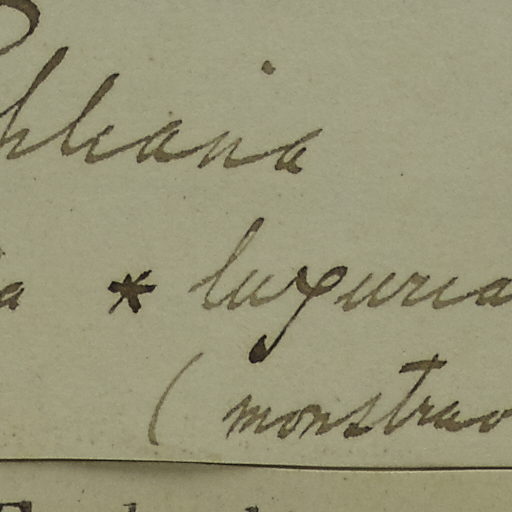 hleana
a * luxuria
(monstrao